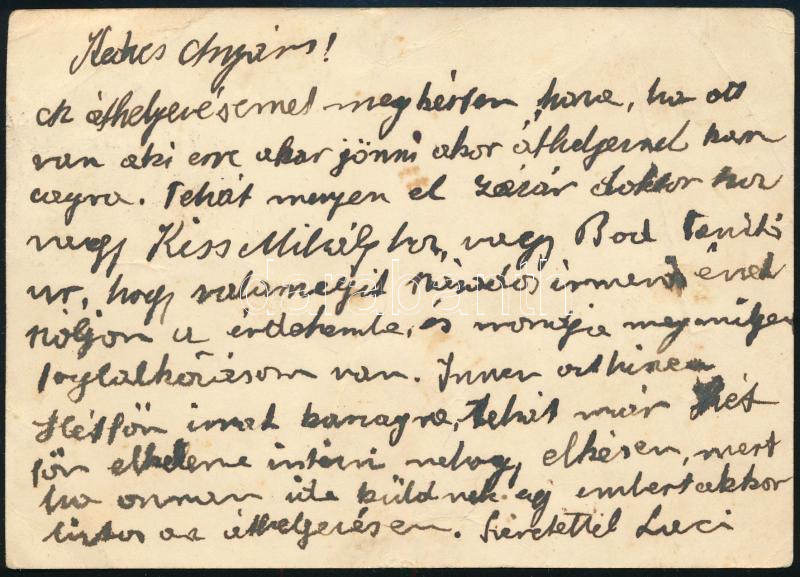 Kedves Anyám!
Az áthelyezésemet megkértem haza, ha ott
van aki erre akar jönni akor áthelyeznek kar
cagra. Tehát menyen el Lázár doktor hoz
vagy Kiss Mihályhoz, vagy Bod Tanító
ur, hogy valamelyik
szóljon az érdekembe, és mondja meg milyen
foglalkozásom van. Innen
Hétfőn irnak karcagra, tehát már Hét
főn el kelene intézni nehogy elkésen, mert
ha onnan ide küldnek egy embert akkor
biztos az áthelyezésem. Szeretettel Laci
darabanth